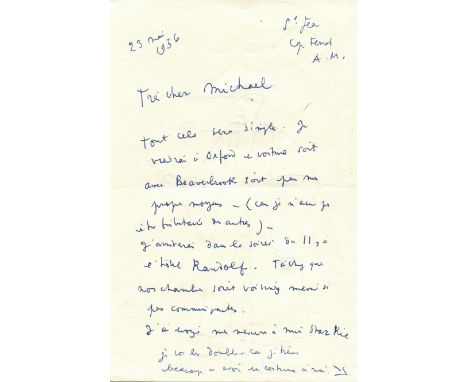 23 mai
1956
St Jea
Cap Ferrat
A.M.
Très cher Michael
Tout cela sera simple. Je
viendrai à Oxford en voiture soit
avec Beaverbrook soit par mes
propres moyens – (car je n'aime pas
être tributaire des autres) –
J'arriverai dans la soirée du 11, à
l'hôtel Randolf. Tâchez que
nos chambres soient voisines même si
pas communicantes.
J'ai envoyé mes mesures à Miss Starkie
je les double car je tiens
beaucoup à avoir ce costume à moi